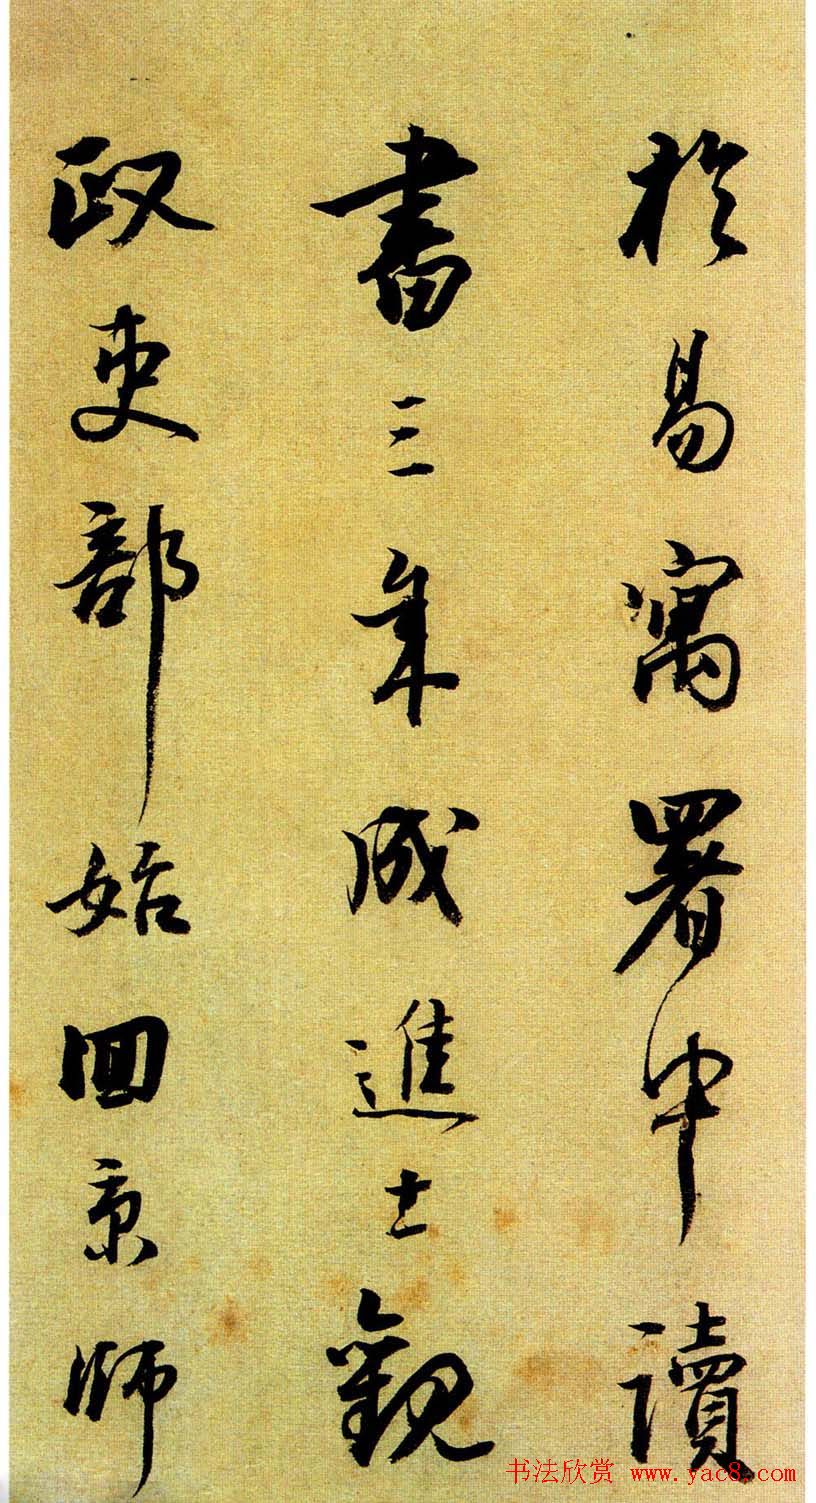 於易寓署中讀
書三年成進士觀
政吏部始回京師
书法欣赏 www.yac8.com